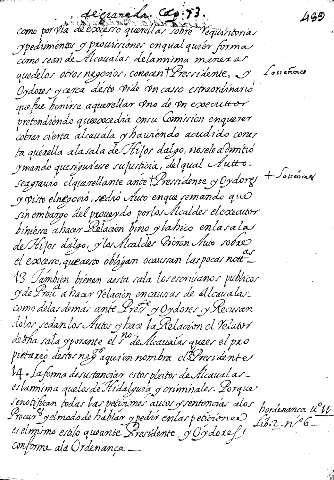 de granada Cap. 73. 485
como por via de excesso querellas sobre Requisitorias
y pedimentos y prouisiones en qualquier forma
como sean de Alcaualas de la misma manera
que de los otros negocios, conocan Presidente, y
Oydores y acerca desto vide vn casso extraordinario
que fue venirse a querellar vno de vn executor
pretendiendo que excedia en su Comision en querer
cobrar cierta alcauala y hauiendo acudido con es
ta querella a la sala de Hijos dalgo, no se le admitio
y mando que siguiese su justicia, del qual Autto
se agrauio el querellante ante Presidente y Oydores
y visto el negocio, se dio Auto en que se mando que
sin embargo del proueydo por los Alcaldes el executor
biniese a hacer Relacion, vino y la hizo en la sala
de Hijos dalgo, y los Alcaldes dieron Auto sobre
el excesso, que esto obligan o causan las pocas nott.as
13 Tambien bienen a esta sala los escriuanos publicos
y de Prou.a a hacer relacion en causas de alcaualas
como a las demas ante Pres.te y Oydores y Recusan
dolos se dan los Autos y hace la Relacion el Relator
de dha sala y o ante el s.no de Alcaualas que es el pro
pietario destos neg.os a quien nombra el Presidente
14 La forma de sustanciar estos pleitos de Alcaualas
es la misma que los de Hidalguia y criminales. Porque
se notifican todas las peticiones autos y sentencias a los
Procur.es y el modo de hablar y pedir en las peticiones
es el mismo estilo que ante Presidente y Oydores
conforme a la Ordenança
+ Los señores
hordenanca tt.o 11
Lib. 2. n.o 6